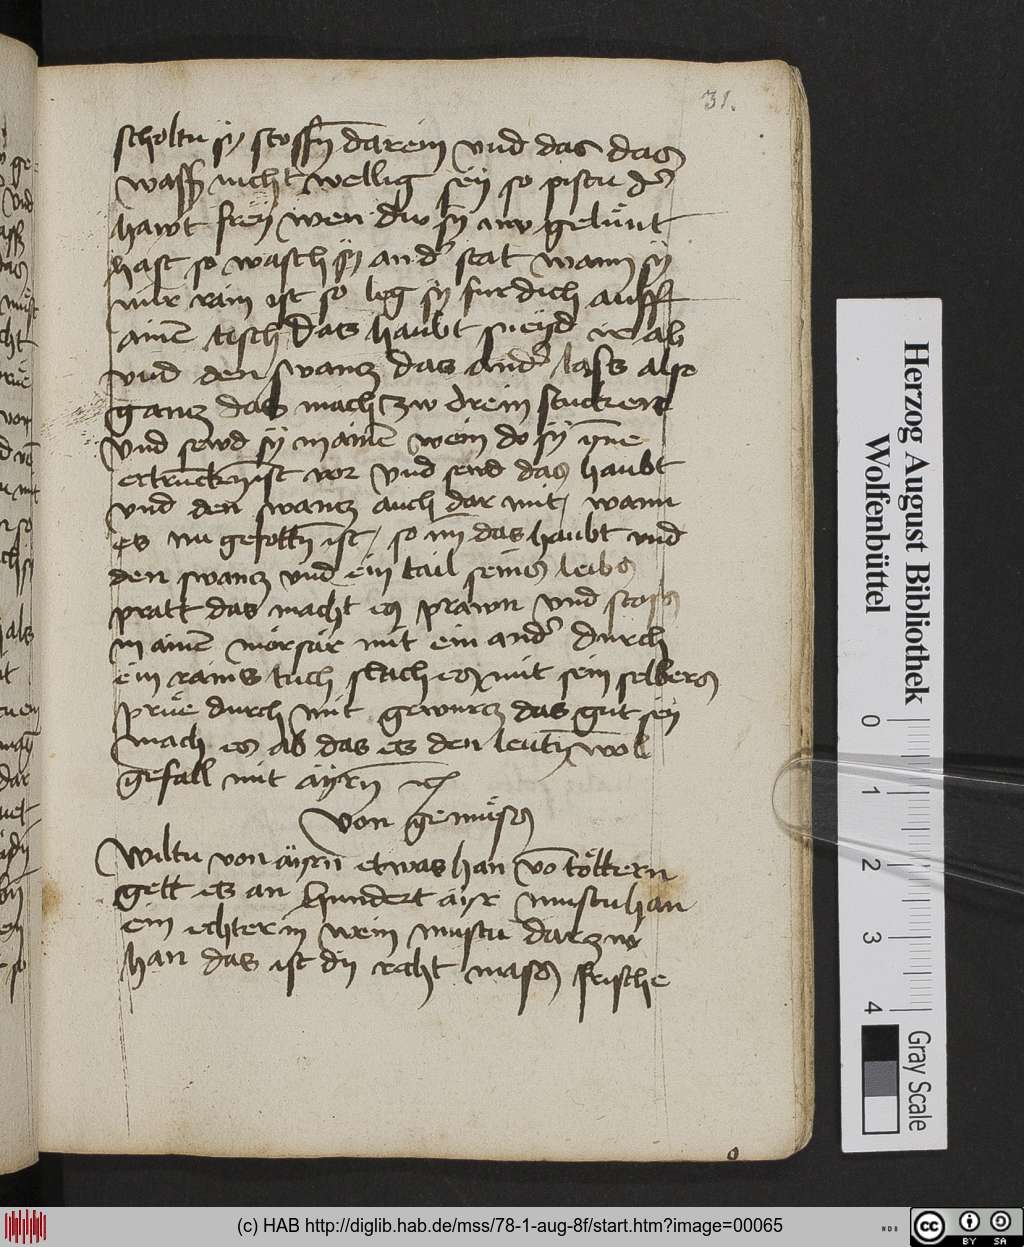 31.
scholtu sy stossn darein vnd das das
wasser nicht wellig sey so pistu der
hawt frey wen dw sy nw gelünt
hast so wasch sy ander stat wann sy
nur rain ist so leg sy fur dich auff
ainen tisch das haubt sneyd ir ab
vnd den swancz das ander lass also
gancz das mach zw drein stucken
vnd sewd sy in ainen wein do sy ynne
ertrunckn ist vor vnd sewd das haubt
vnd den swancz auch dar mit wann
es nu gesottn ist so nym das haubt vnd
den swancz vnd ein tail seins leibs
pratt das macht es prawn vnd stoss
in ainen morsar mit ein ander durch
ein rains tuch slach es mit sein selbers
prüe durch mit gewurcz das gut sey
mach es ab das es den leuttn woll
gefall mit ayrn etc
von gemüss
Wiltu von ayrn etwas han von töttern
gett es an hundert ayr mustu han
ein echterin wein mustu darzw
han das ist dy recht mass frische
Herzog August Bibliothek
Wolfenbüttel
0 1 2 3 4
Gray Scale
(c) HAB http://diglib.hab.de/mss/78-1-aug-8f/start.htm?image=00065
WDB
cc BY SA